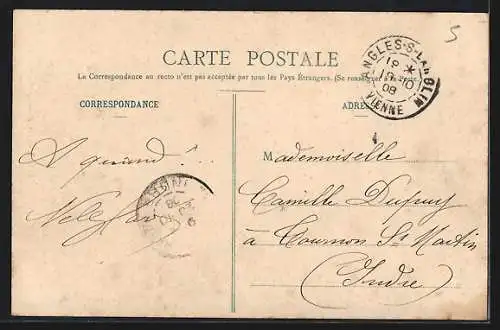 5
CARTE POSTALE
La Correspondance au recto n'est pas acceptée par tous les Pays Étrangers. (Se renseigner à la Poste
CORRESPONDANCE
ADRES
ANGLES-S-L'ANGLIN
18 *
19-10
08
VIENNE
4
A quand?...
Mademoiselle
Camille Dupuy
à Tournon St Martin
(Indre)